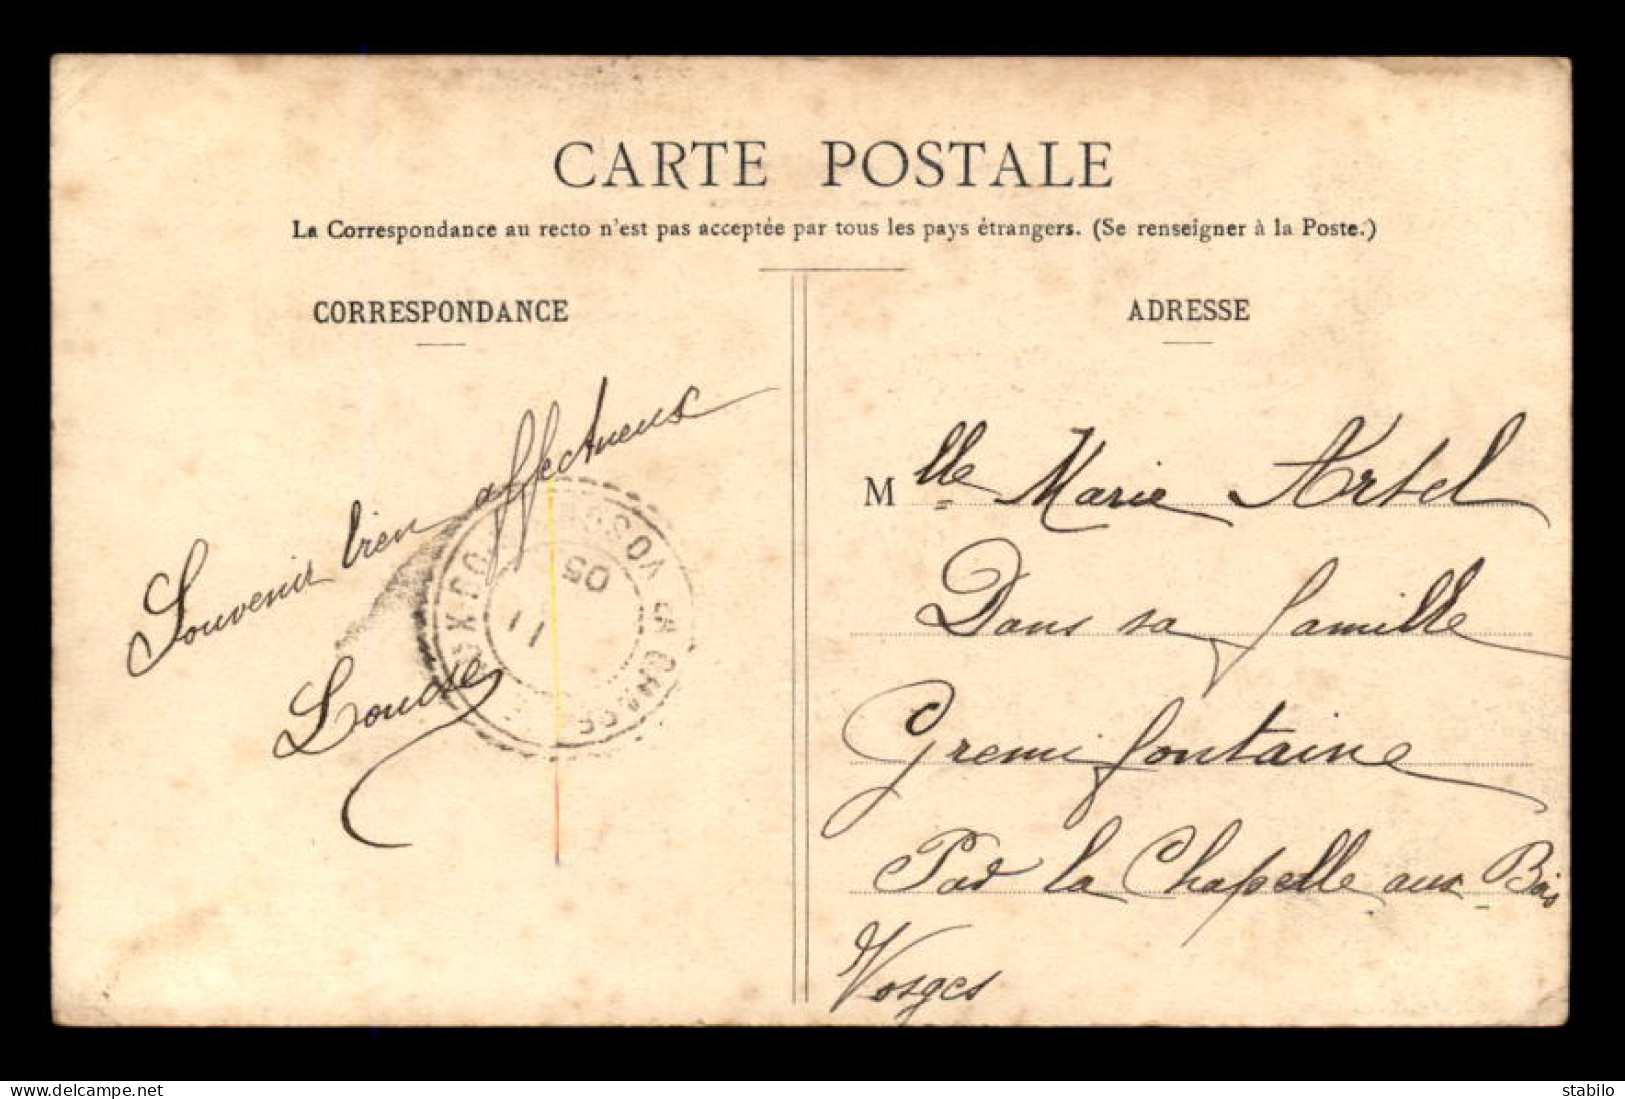 CARTE POSTALE
La Correspondance au recto n'est pas acceptée par tous les pays étrangers. (Se renseigner à la Poste.)
CORRESPONDANCE
Souvenir bien affectueux
Louise
ADRESSE
Mlle Marie Artel
Dans sa famille
Gremifontaine
Par la Chapelle aux Bois
Vosges
05
11
VOSGES
delcampe.net
stabilo